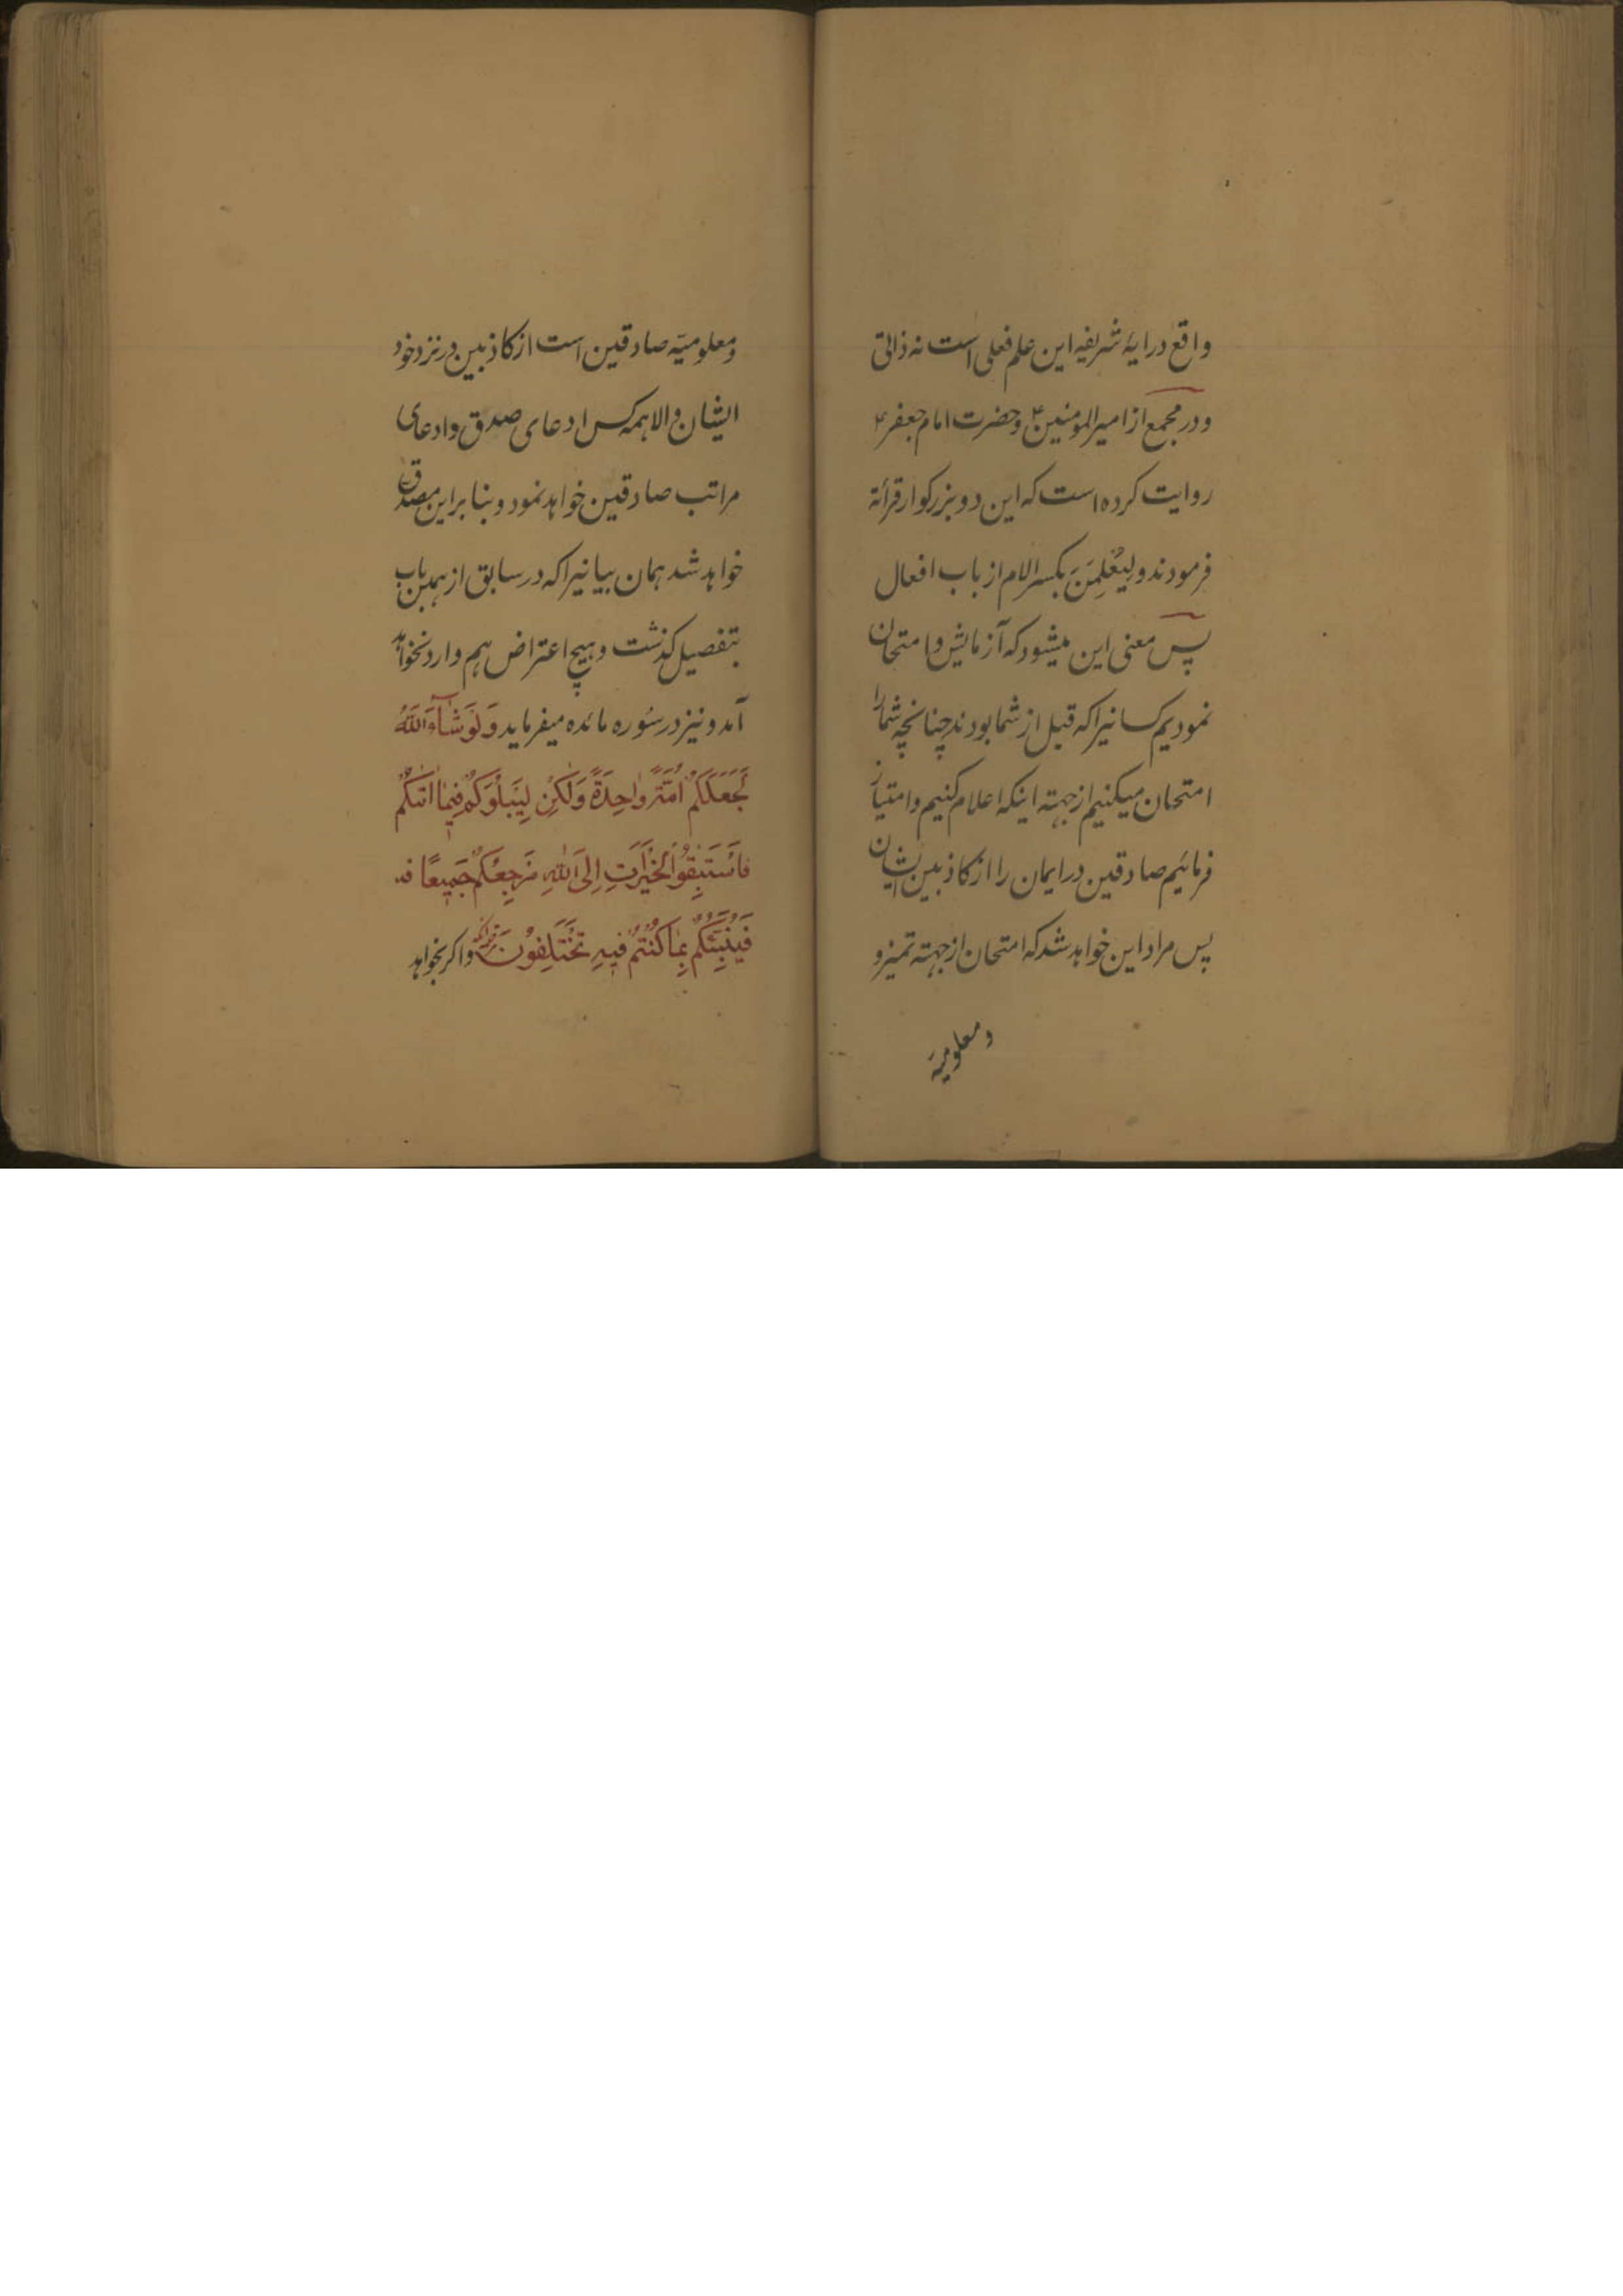 واقع درایۀ شریفه این علم فعلی است نه ذاتی
و در مجمع از امیرالمومنین ع و حضرت امام جعفر ع
روایت کرده است که این دو بزرکوار قرائة
فرمودند و لیُعْلِمَنَّ بکسر الام از باب افعال
پس معنی این میشود که آزمایش و امتحان
نمودیم کسانیرا که قبل از شما بودند چنانچه شما را
امتحان میکنیم از جهته اینکه اعلام کنیم و امتیاز
فرمائیم صادقین در ایمان را از کاذبین ایشان
پس مراد این خواهد شد که امتحان از جهته تمیز و
و معلومیة
و معلومیّه صادقین است از کاذبین در نزد خود
ایشان و الا همه کس ادعای صدق و ادعای
مراتب صادقین خواهد نمود و بنا براین مصدق
خواهد شد همان بیانیرا که در سابق از همین باب
بتفصیل کذشت و هیچ اعتراض هم وارد نخواهد
آمد و نیز در سوره مائده میفرماید وَلَوْ شَآءَ اللّٰهُ
لَجَعَلَكُمْ اُمَّةً وٰاحِدَةً وَلٰكِنْ لِيَبْلُوَكُمْ فِيمٰا اٰتٰيكُمْ
فَاسْتَبِقُوا الْخَيْرٰاتِ اِلَى اللّٰهِ مَرْجِعُكُمْ جَمِيعًا
فَيُنَبِّئُكُمْ بِمٰا كُنْتُمْ فِيهِ تَخْتَلِفُونَ و اکر بخواهد